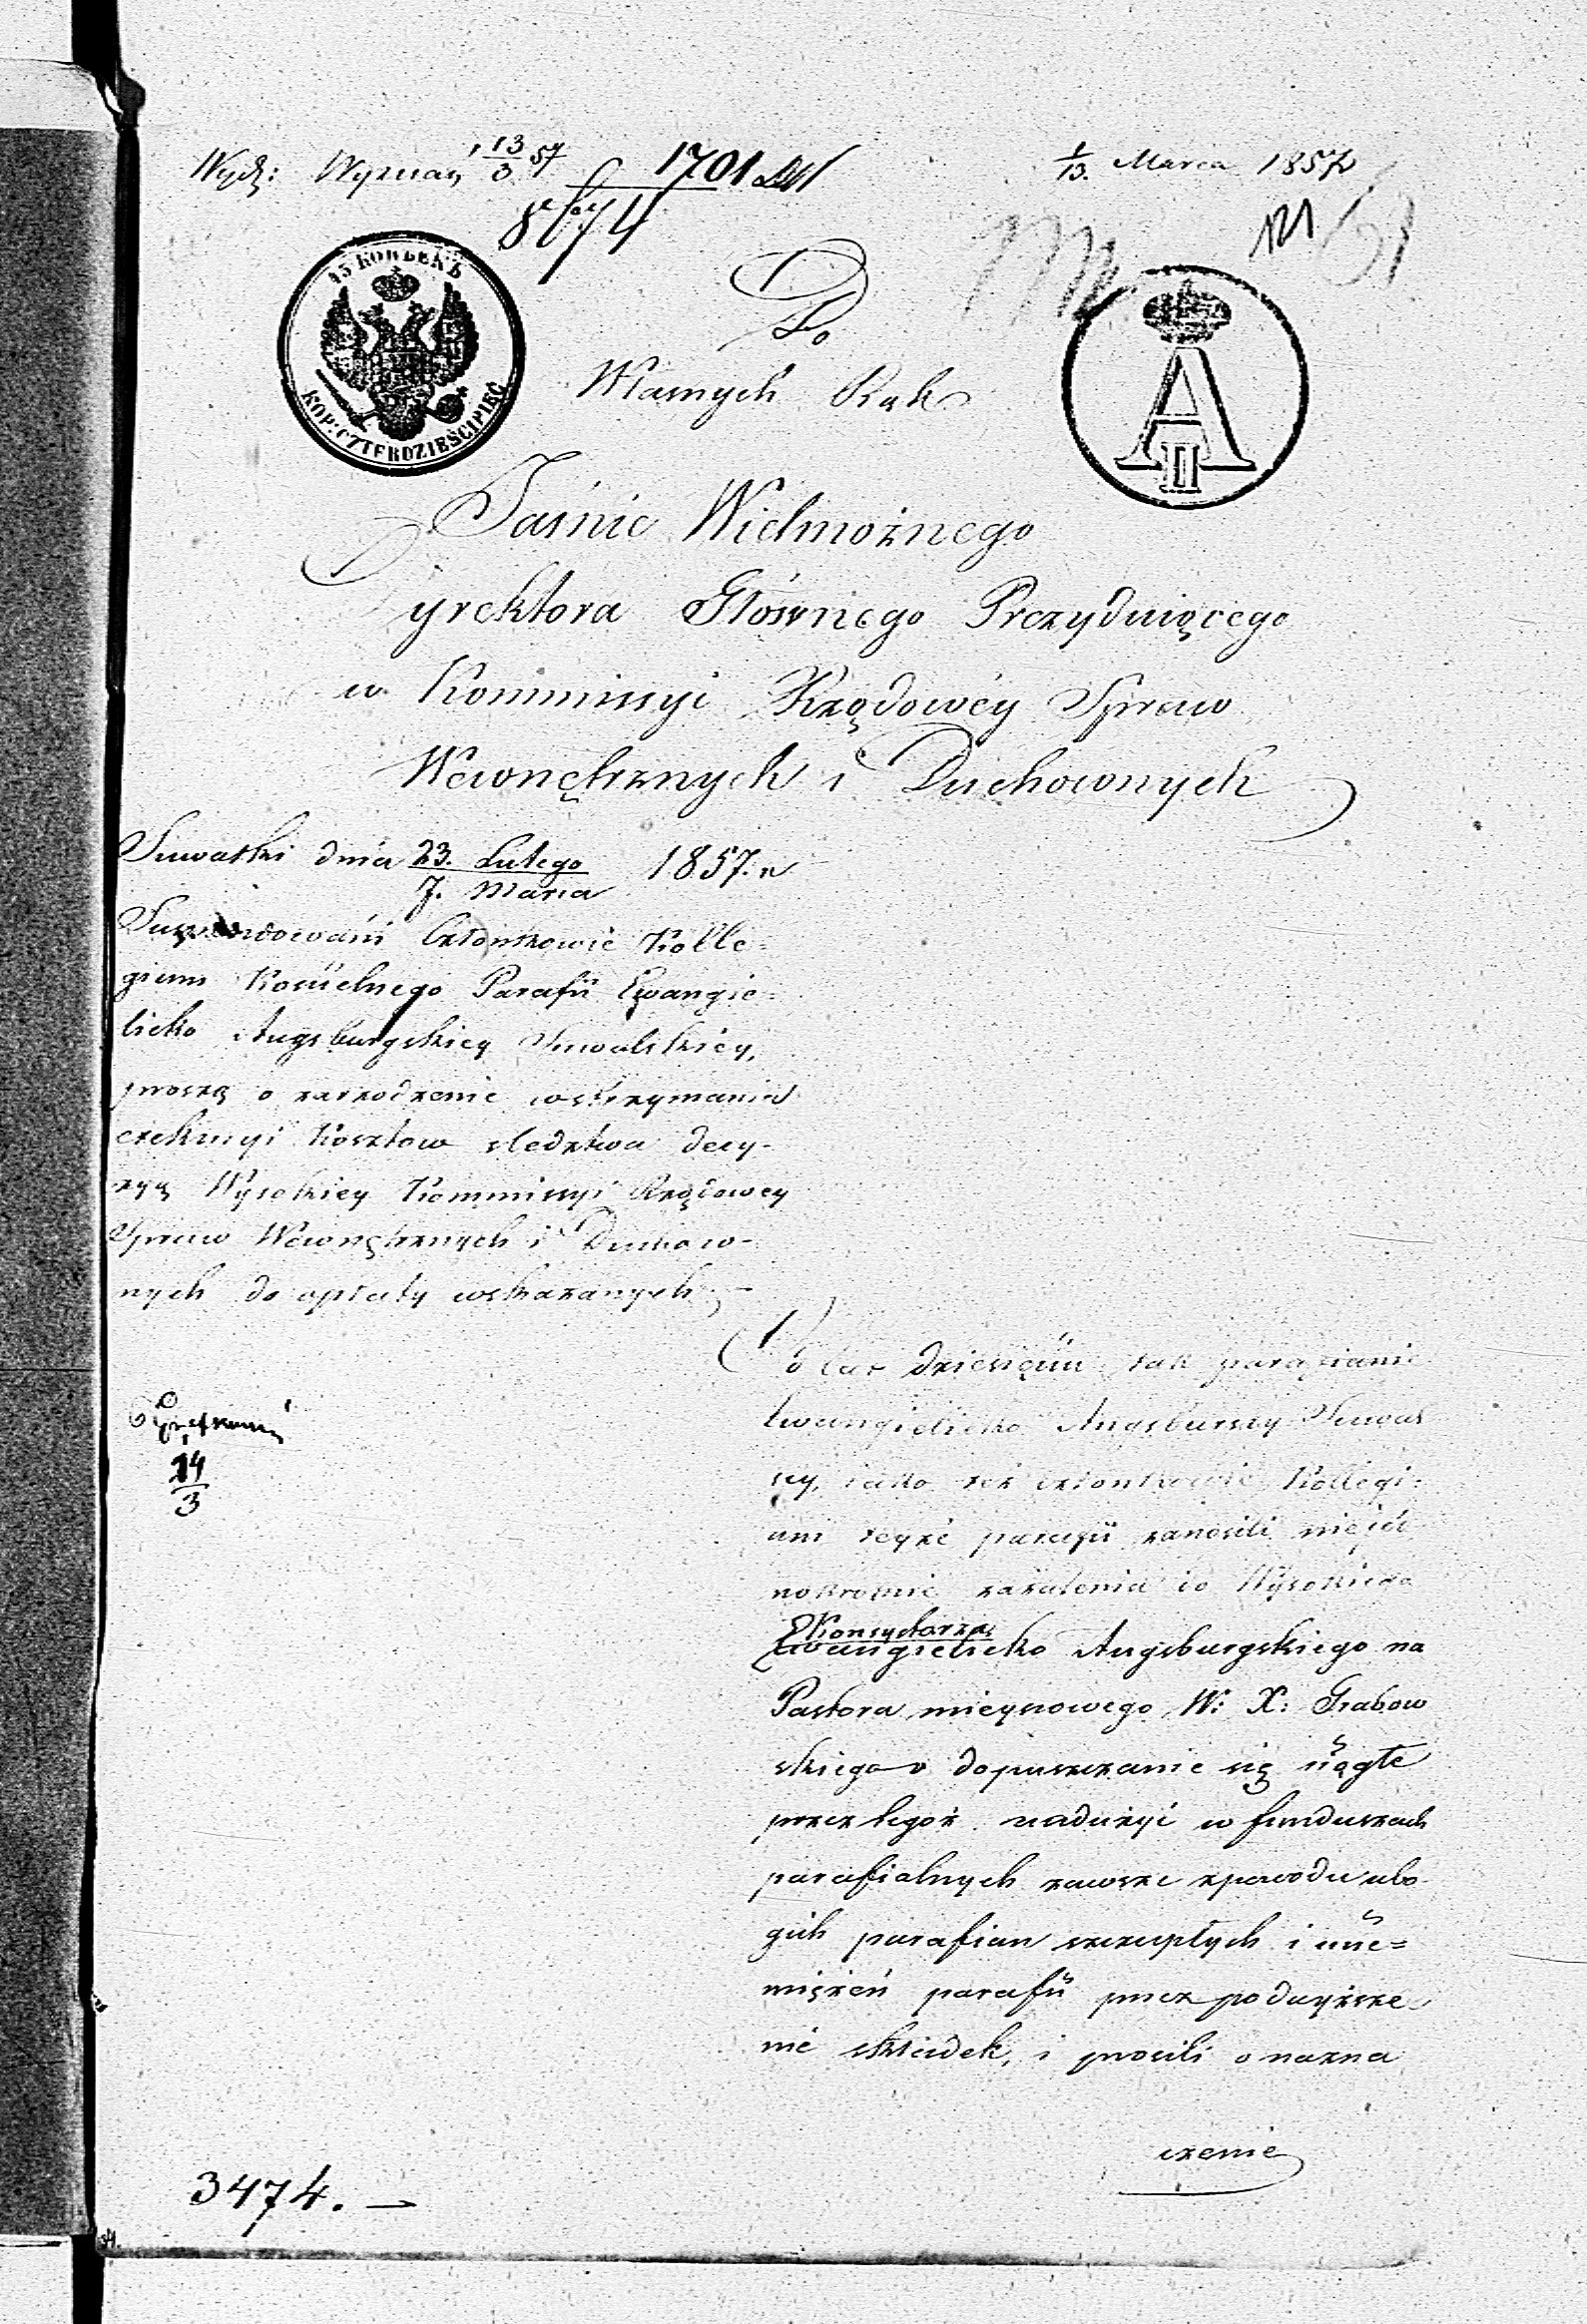 Wydz: Wyznań 13/3 57 1701
8674
1/13. Marca 1857
121
45 КОПѢЕКЪ
KOP: CZTERDZIEŚCI PIĘĆ
A II
Do
Własnych Rąk
Jaśnie Wielmożnego
Dyrektora Głównego Prezyduiącego
w Kommissyi Rządowéy Spraw
Wewnętrznych i Duchownych
Suwałki dnia 23. Lutego / 7. Marca 1857. r
Członkowie Kolle=
gium Kościelnego Parafii Ewangie=
licko Augsburgskiey Suwalskiey,
proszą o zarządzenie wstrzymania
exekucyi kosztow sledztwa decy-
zyą Wysokiey Kommissyi Rządowey
Spraw Wewnętrznych i Duchow-
nych do opłaty wskazanych. —
Od lat dziesięciu tak parafianie
Ewangielicko Augsburscy Suwal
scy, iako też członkowie Kollegi=
um teyże parafii zanosili nieied
nokrotnie zażalenia do Wysokiego
Konsystorza
Ewangielicko Augsburgskiego na
Pastora mieyscowego W: X: Grabow
skiego o dopuszczanie się ciągłe
przez tegoż nadużyć w funduszach
parafialnych zawsze z powodu ubo
gich parafian szczupłych i ucie=
miężeń parafii przez podwyższe
nie składek, i prosili o nazna
czenie
14/3
3474. —